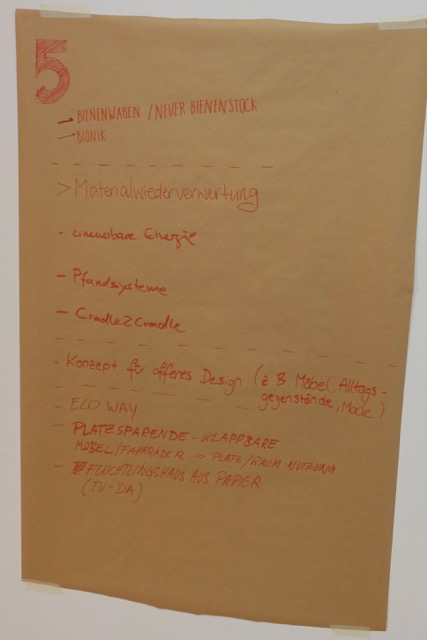 5
→ BIENENWABEN / NEUER BIENENSTOCK
→ BIONIK
> Materialwiederverwertung
- Energie
- Pfandsysteme
- Cradle2Cradle
- Konzept für offenes Design (z B. Möbel, Alltags-
gegenstände, Mode)
- ECO WAY
- PLATZSPARENDE - KLAPPBARE
MÖBEL/FAHRRÄDER → PLATZ/RAUM NUTZUNG
- FLÜCHTLINGSHAUS AUS PAPIER
(TU-DA)